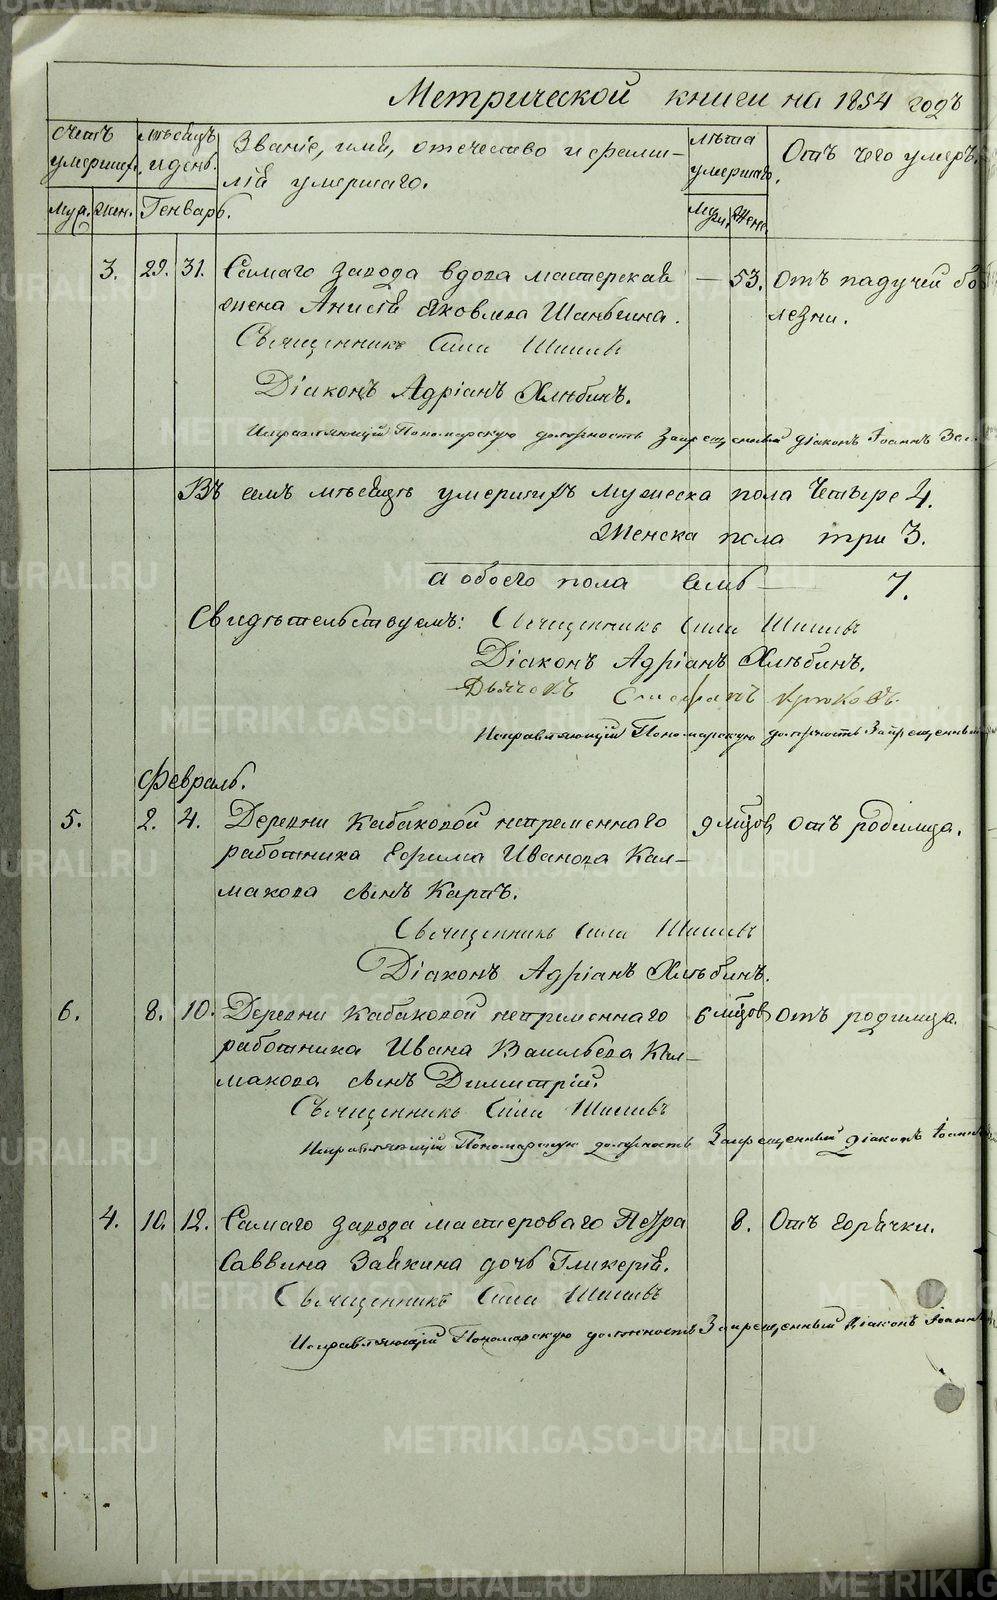 Метрической книги на 1854 годъ
счетъ умершихъ. мѣсяцъ и день. Званіе, имя, отечество и фами-
лія умершаго. лѣта умершаго. Отъ чего умеръ.
Муж. Жен. Генварь. Муж. Жен.
3. 29. 31. Самаго завода вдова мастерская — 53. отъ падучей бо
жена Анисія Яковлева Шаньгина. лезни.
Священникъ Сила Шишевъ
Діаконъ Адріанъ Хлѣбинъ.
Исправляющій Пономарскую должность Запрещенный діаконъ Іоаннъ
Въ семъ мѣсяцѣ умершихъ мужеска пола Четыре 4.
Женска пола три 3.
а обоего пола семь — 7.
Свидѣтельствуемъ: Священникъ Сила Шишевъ
Діаконъ Адріанъ Хлѣбинъ.
Дьячекъ Стефанъ Крюковъ.
Исправляющій Пономарскую должность Запрещенный
Февраль.
5. 2. 4. Деревни Кабаковой непременнаго 9 мцовъ отъ родимца.
работника Ефима Иванова Кал-
макова сынъ Карпъ.
Священникъ Сила Шишевъ
Діаконъ Адріанъ Хлѣбинъ.
6. 8. 10. Деревни Кабаковой непременнаго 6 мцовъ отъ родимца.
работника Ивана Васильева Кал-
макова сынъ Димитрій.
Священникъ Сила Шишевъ
Исправляющій Пономарскую должность Запрещенный діаконъ Іоаннъ
4. 10. 12. Самаго завода мастероваго Петра 8. Отъ горячки.
Саввина Зайкина дочь Гликерія.
Священникъ Сила Шишевъ
Исправляющій Пономарскую должность Запрещенный діаконъ Іоаннъ
METRIKI.GASO-URAL.RU